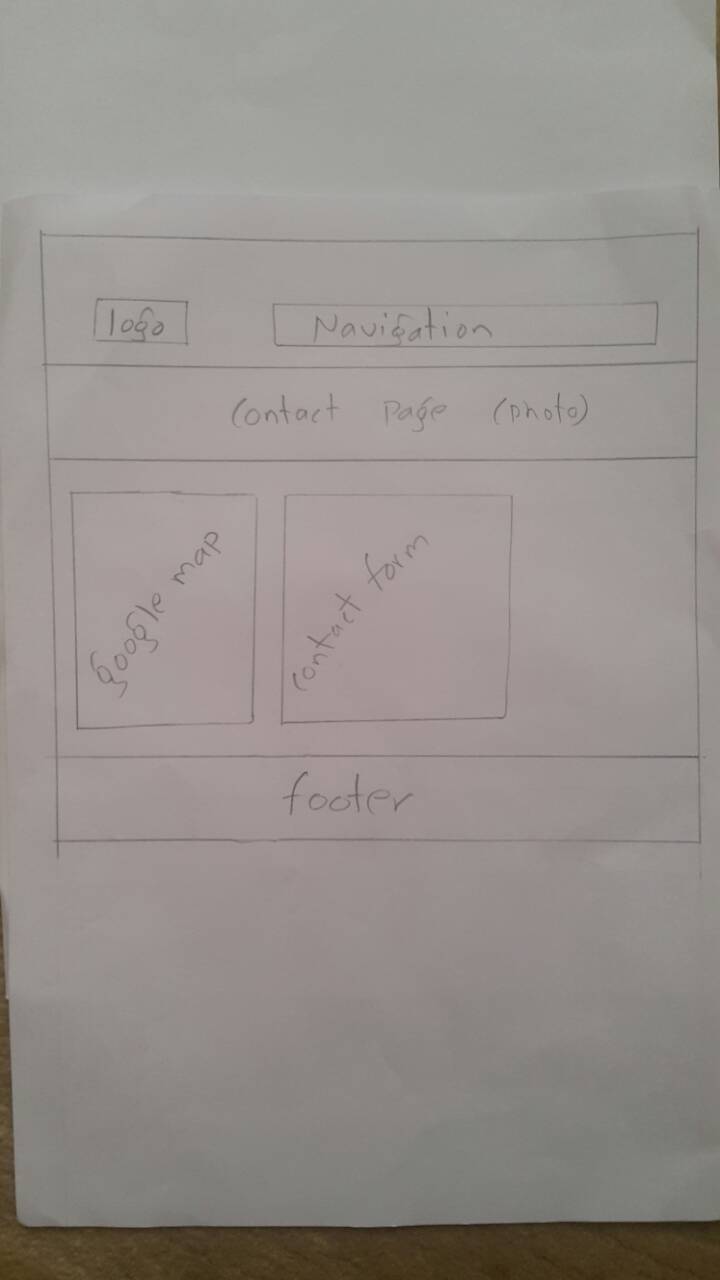 logo
Navigation
Contact Page (Photo)
google map
contact form
footer